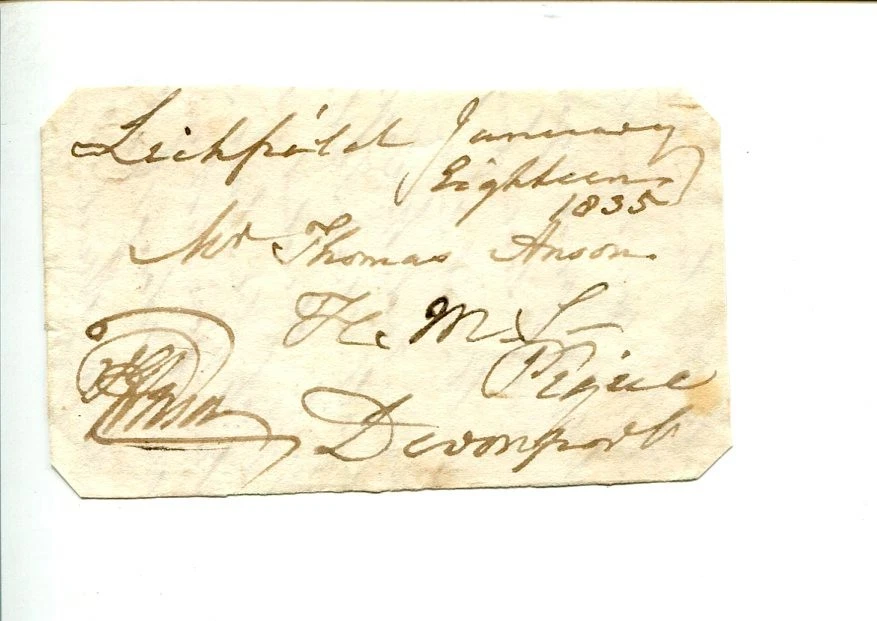 Lichfield January
Eighteen
1835
Mr Thomas Anson
H. M. S
Pique
Devonport